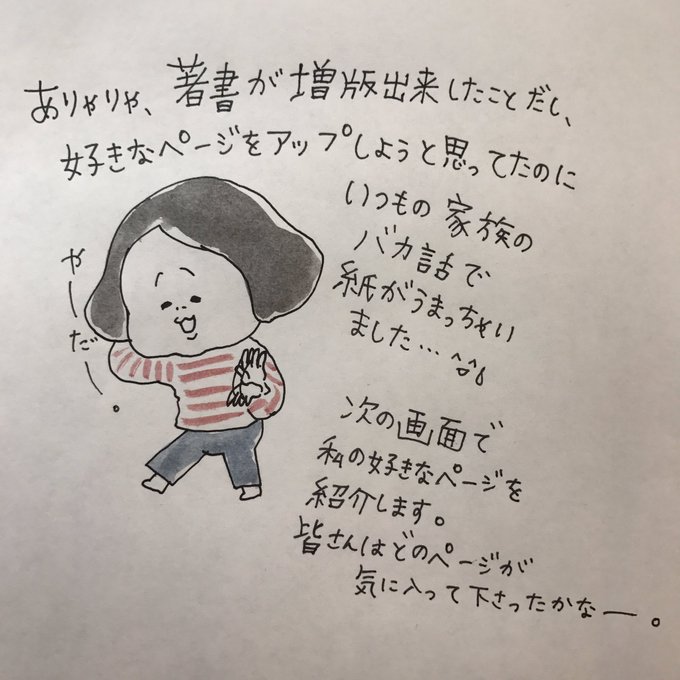 ありゃりゃ、著書が増版出来したことだし、
好きなページをアップしようと思ってたのに
いつもの家族の
バカ話で
紙がうまっちゃい
ました…
やーだー。
次の画面で
私の好きなページを
紹介します。
皆さんはどのページが
気に入って下さったかなー。